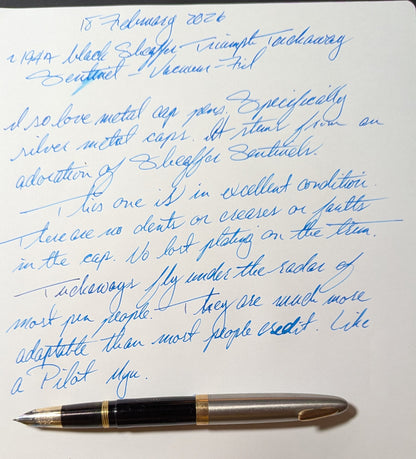 18 February 2026
~ 194A black Sheaffer Triumph Tuckaway
Sentinel - Vacuum-Fil
I so love metal cap pens. Specifically
silver metal caps. It stems from an
adoration of Sheaffer Sentinels.
This one is in excellent condition.
There are no dents or creases or faults
in the cap. No lost plating on the trim.
Tuckaways fly under the radar of
most pen people. They are much more
adaptable than most people credit. Like
a Pilot Myu.